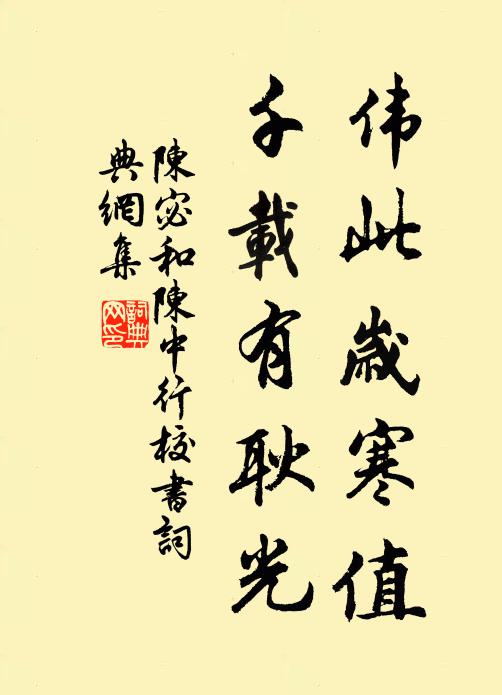 伟此歲寒值
千載有耿光
陳宓和陳中行校書詞
典網集
詞典網印